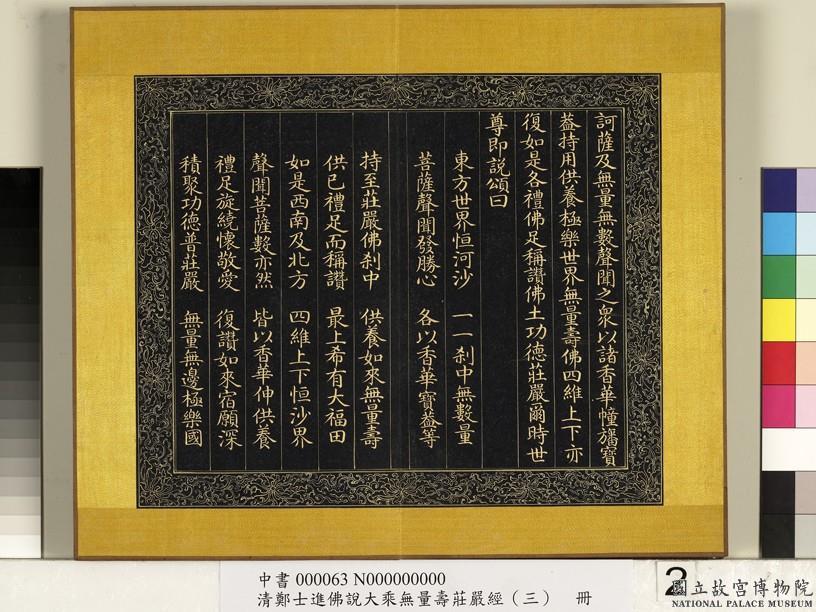 訶薩及無量無數聲聞之衆以諸香華幢旛寶
葢持用供養極樂世界無量壽佛四維上下亦
復如是各禮佛足稱讚佛土功德莊嚴爾時世
尊即説頌曰
東方世界恒河沙　一一刹中無數量
菩薩聲聞發勝心　各以香華寶葢等
持至莊嚴佛刹中　供養如來無量壽
供已禮足而稱讚　最上希有大福田
如是西南及北方　四維上下恒沙界
聲聞菩薩數亦然　皆以香華伸供養
禮足旋繞懷敬愛　復讚如來宿願深
積聚功德普莊嚴　無量無邊極樂國
中書 000063 N000000000
清鄭士進佛說大乘無量壽莊嚴經（三）　冊
2
國立故宮博物院
NATIONAL PALACE MUSEUM